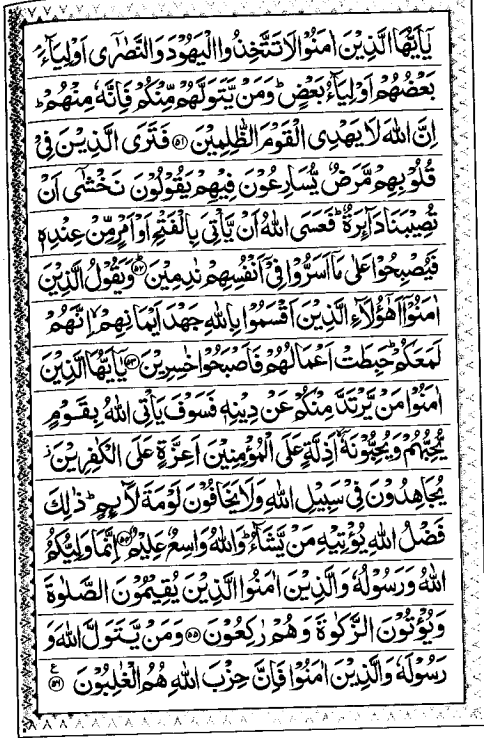 يٰۤاَيُّهَا الَّذِيْنَ اٰمَنُوْا لَا تَتَّخِذُوا الْيَهُوْدَ وَالنَّصٰرٰۤى اَوْلِيَآءَ ؔۘ
بَعْضُهُمْ اَوْلِيَآءُ بَعْضٍ ؕ وَمَنْ يَّتَوَلَّهُمْ مِّنْكُمْ فَاِنَّهٗ مِنْهُمْ ؕ
اِنَّ اللّٰهَ لَا يَهْدِى الْقَوْمَ الظّٰلِمِيْنَ ۵۱ فَتَرَى الَّذِيْنَ فِىْ
قُلُوْبِهِمْ مَّرَضٌ يُّسَارِعُوْنَ فِيْهِمْ يَقُوْلُوْنَ نَخْشٰۤى اَنْ
تُصِيْبَنَا دَآئِرَةٌ ؕ فَعَسَى اللّٰهُ اَنْ يَّاْتِىَ بِالْفَتْحِ اَوْ اَمْرٍ مِّنْ عِنْدِهٖ
فَيُصْبِحُوْا عَلٰى مَاۤ اَسَرُّوْا فِىْۤ اَنْفُسِهِمْ نٰدِمِيْنَ ۵۲ وَيَقُوْلُ الَّذِيْنَ
اٰمَنُوْۤا اَهٰۤؤُلَآءِ الَّذِيْنَ اَقْسَمُوْا بِاللّٰهِ جَهْدَ اَيْمَانِهِمْ ۙ اِنَّهُمْ
لَمَعَكُمْ ؕ حَبِطَتْ اَعْمَالُهُمْ فَاَصْبَحُوْا خٰسِرِيْنَ ۵۳ يٰۤاَيُّهَا الَّذِيْنَ
اٰمَنُوْا مَنْ يَّرْتَدَّ مِنْكُمْ عَنْ دِيْنِهٖ فَسَوْفَ يَاْتِى اللّٰهُ بِقَوْمٍ
يُّحِبُّهُمْ وَيُحِبُّوْنَهٗۤ ۙ اَذِلَّةٍ عَلَى الْمُؤْمِنِيْنَ اَعِزَّةٍ عَلَى الْكٰفِرِيْنَ ز
يُجَاهِدُوْنَ فِىْ سَبِيْلِ اللّٰهِ وَلَا يَخَافُوْنَ لَوْمَةَ لَآئِمٍ ؕ ذٰلِكَ
فَضْلُ اللّٰهِ يُؤْتِيْهِ مَنْ يَّشَآءُ ؕ وَاللّٰهُ وَاسِعٌ عَلِيْمٌ ۵۴ اِنَّمَا وَلِيُّكُمُ
اللّٰهُ وَرَسُوْلُهٗ وَالَّذِيْنَ اٰمَنُوا الَّذِيْنَ يُقِيْمُوْنَ الصَّلٰوةَ
وَيُؤْتُوْنَ الزَّكٰوةَ وَهُمْ رٰكِعُوْنَ ۵۵ وَمَنْ يَّتَوَلَّ اللّٰهَ وَ
رَسُوْلَهٗ وَالَّذِيْنَ اٰمَنُوْا فَاِنَّ حِزْبَ اللّٰهِ هُمُ الْغٰلِبُوْنَ ۵۶ ع